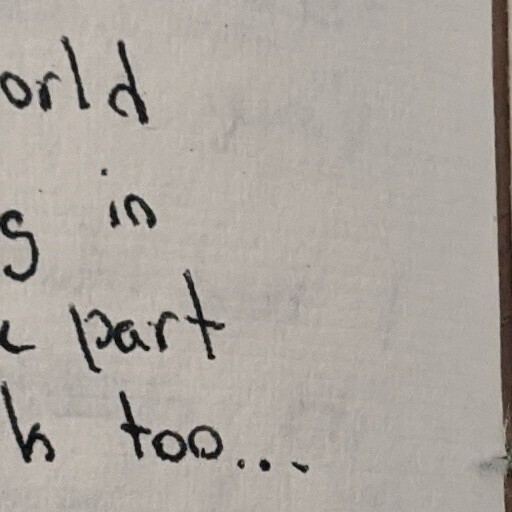 orld
s in
e part
k too...